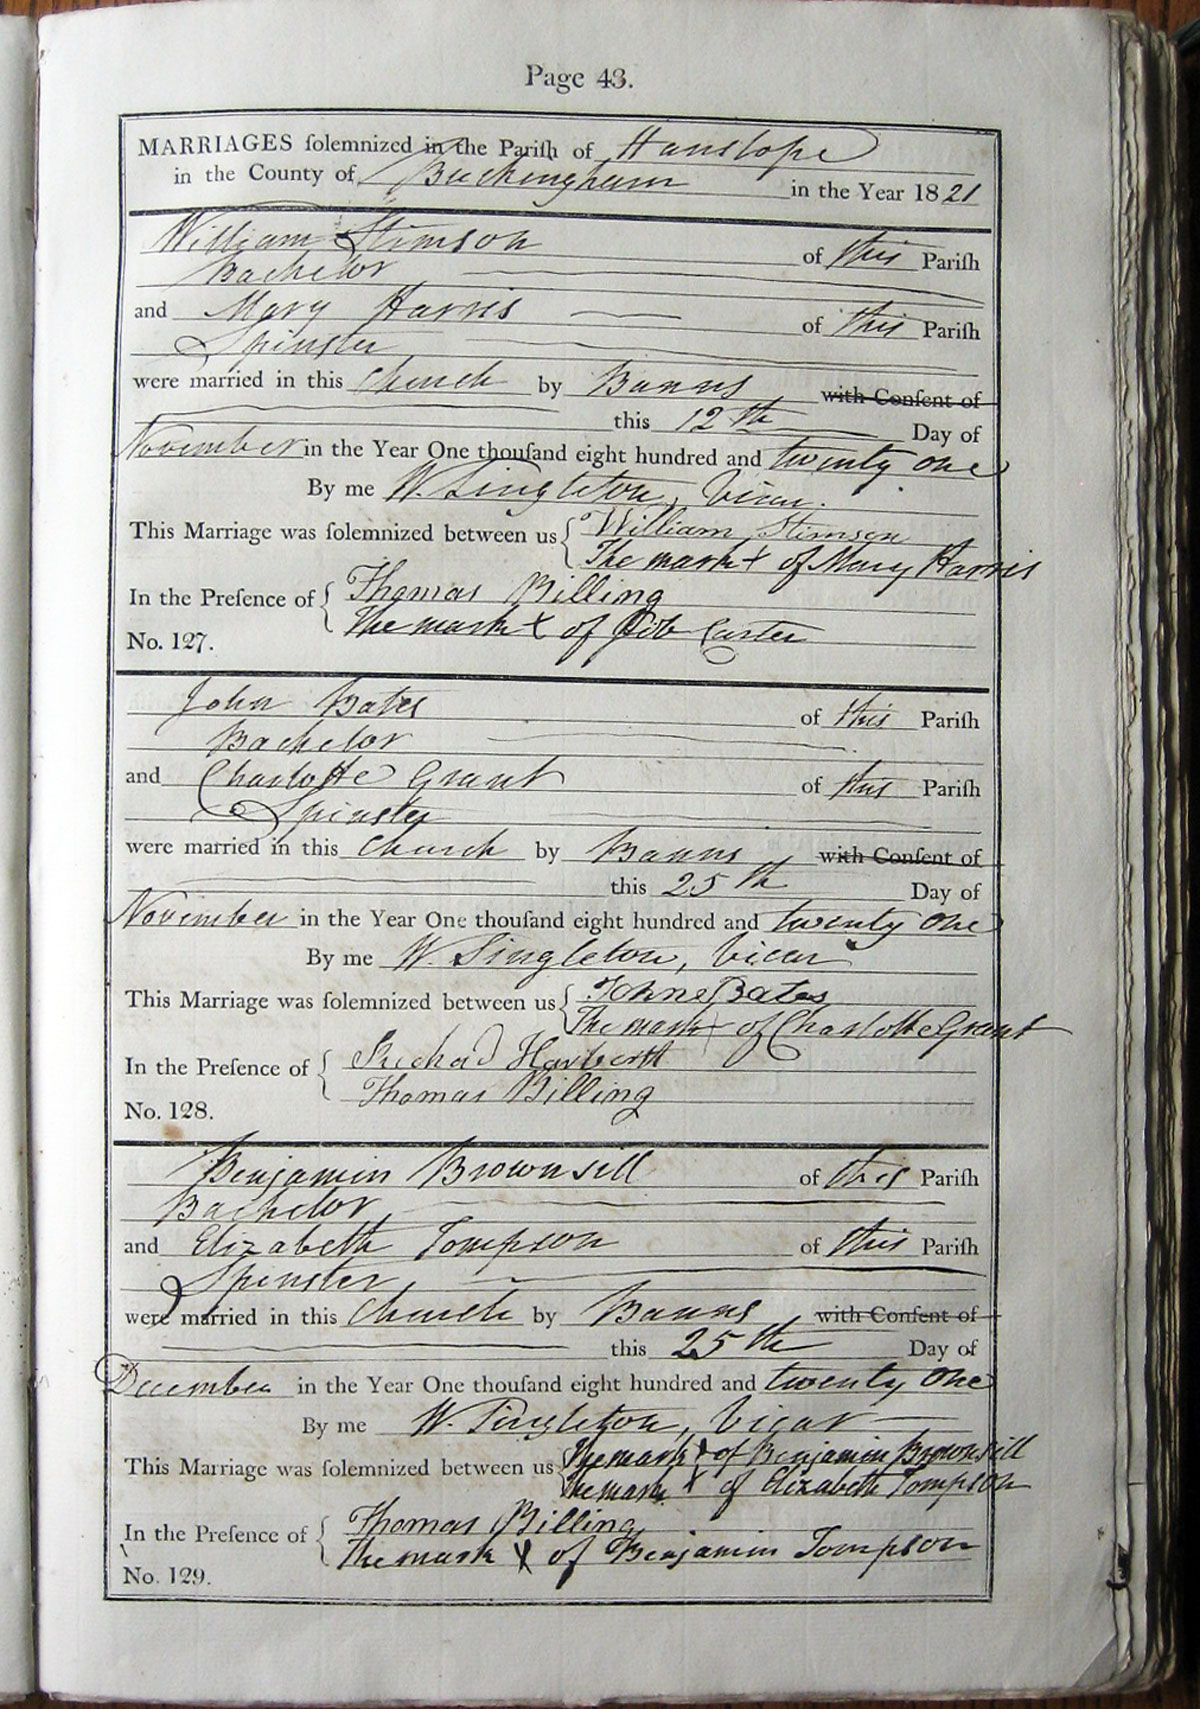 Page 43.
MARRIAGES ſolemnized in the Pariſh of Hanslope
in the County of Buckingham in the Year 1821
William Stimson of this Pariſh
Bachelor
and Mary Harris of this Pariſh
Spinster
were married in this Church by Banns with Conſent of
this 12th Day of
November in the Year One thouſand eight hundred and twenty one
By me W. Singleton, Vicar.
This Marriage was ſolemnized between us { William Stimson
The mark X of Mary Harris
In the Preſence of { Thomas Billing
The mark X of Job Carter
No. 127.
John Bates of this Pariſh
Bachelor
and Charlotte Grant of this Pariſh
Spinster
were married in this Church by Banns with Conſent of
this 25th Day of
November in the Year One thouſand eight hundred and twenty one
By me W. Singleton, Vicar
This Marriage was ſolemnized between us { Bates
The mark X of Charlotte Grant
In the Preſence of {
Thomas Billing
No. 128.
Benjamin Brownsill of this Pariſh
Bachelor
and Elizabeth Tompson of this Pariſh
Spinster
were married in this Church by Banns with Conſent of
this 25th Day of
December in the Year One thouſand eight hundred and twenty one
By me W. Singleton, Vicar
This Marriage was ſolemnized between us { The mark X of Benjamin Brownsill
The mark X of Elizabeth Tompson
In the Preſence of { Thomas Billing
The mark X of Benjamin Tompson
No. 129.